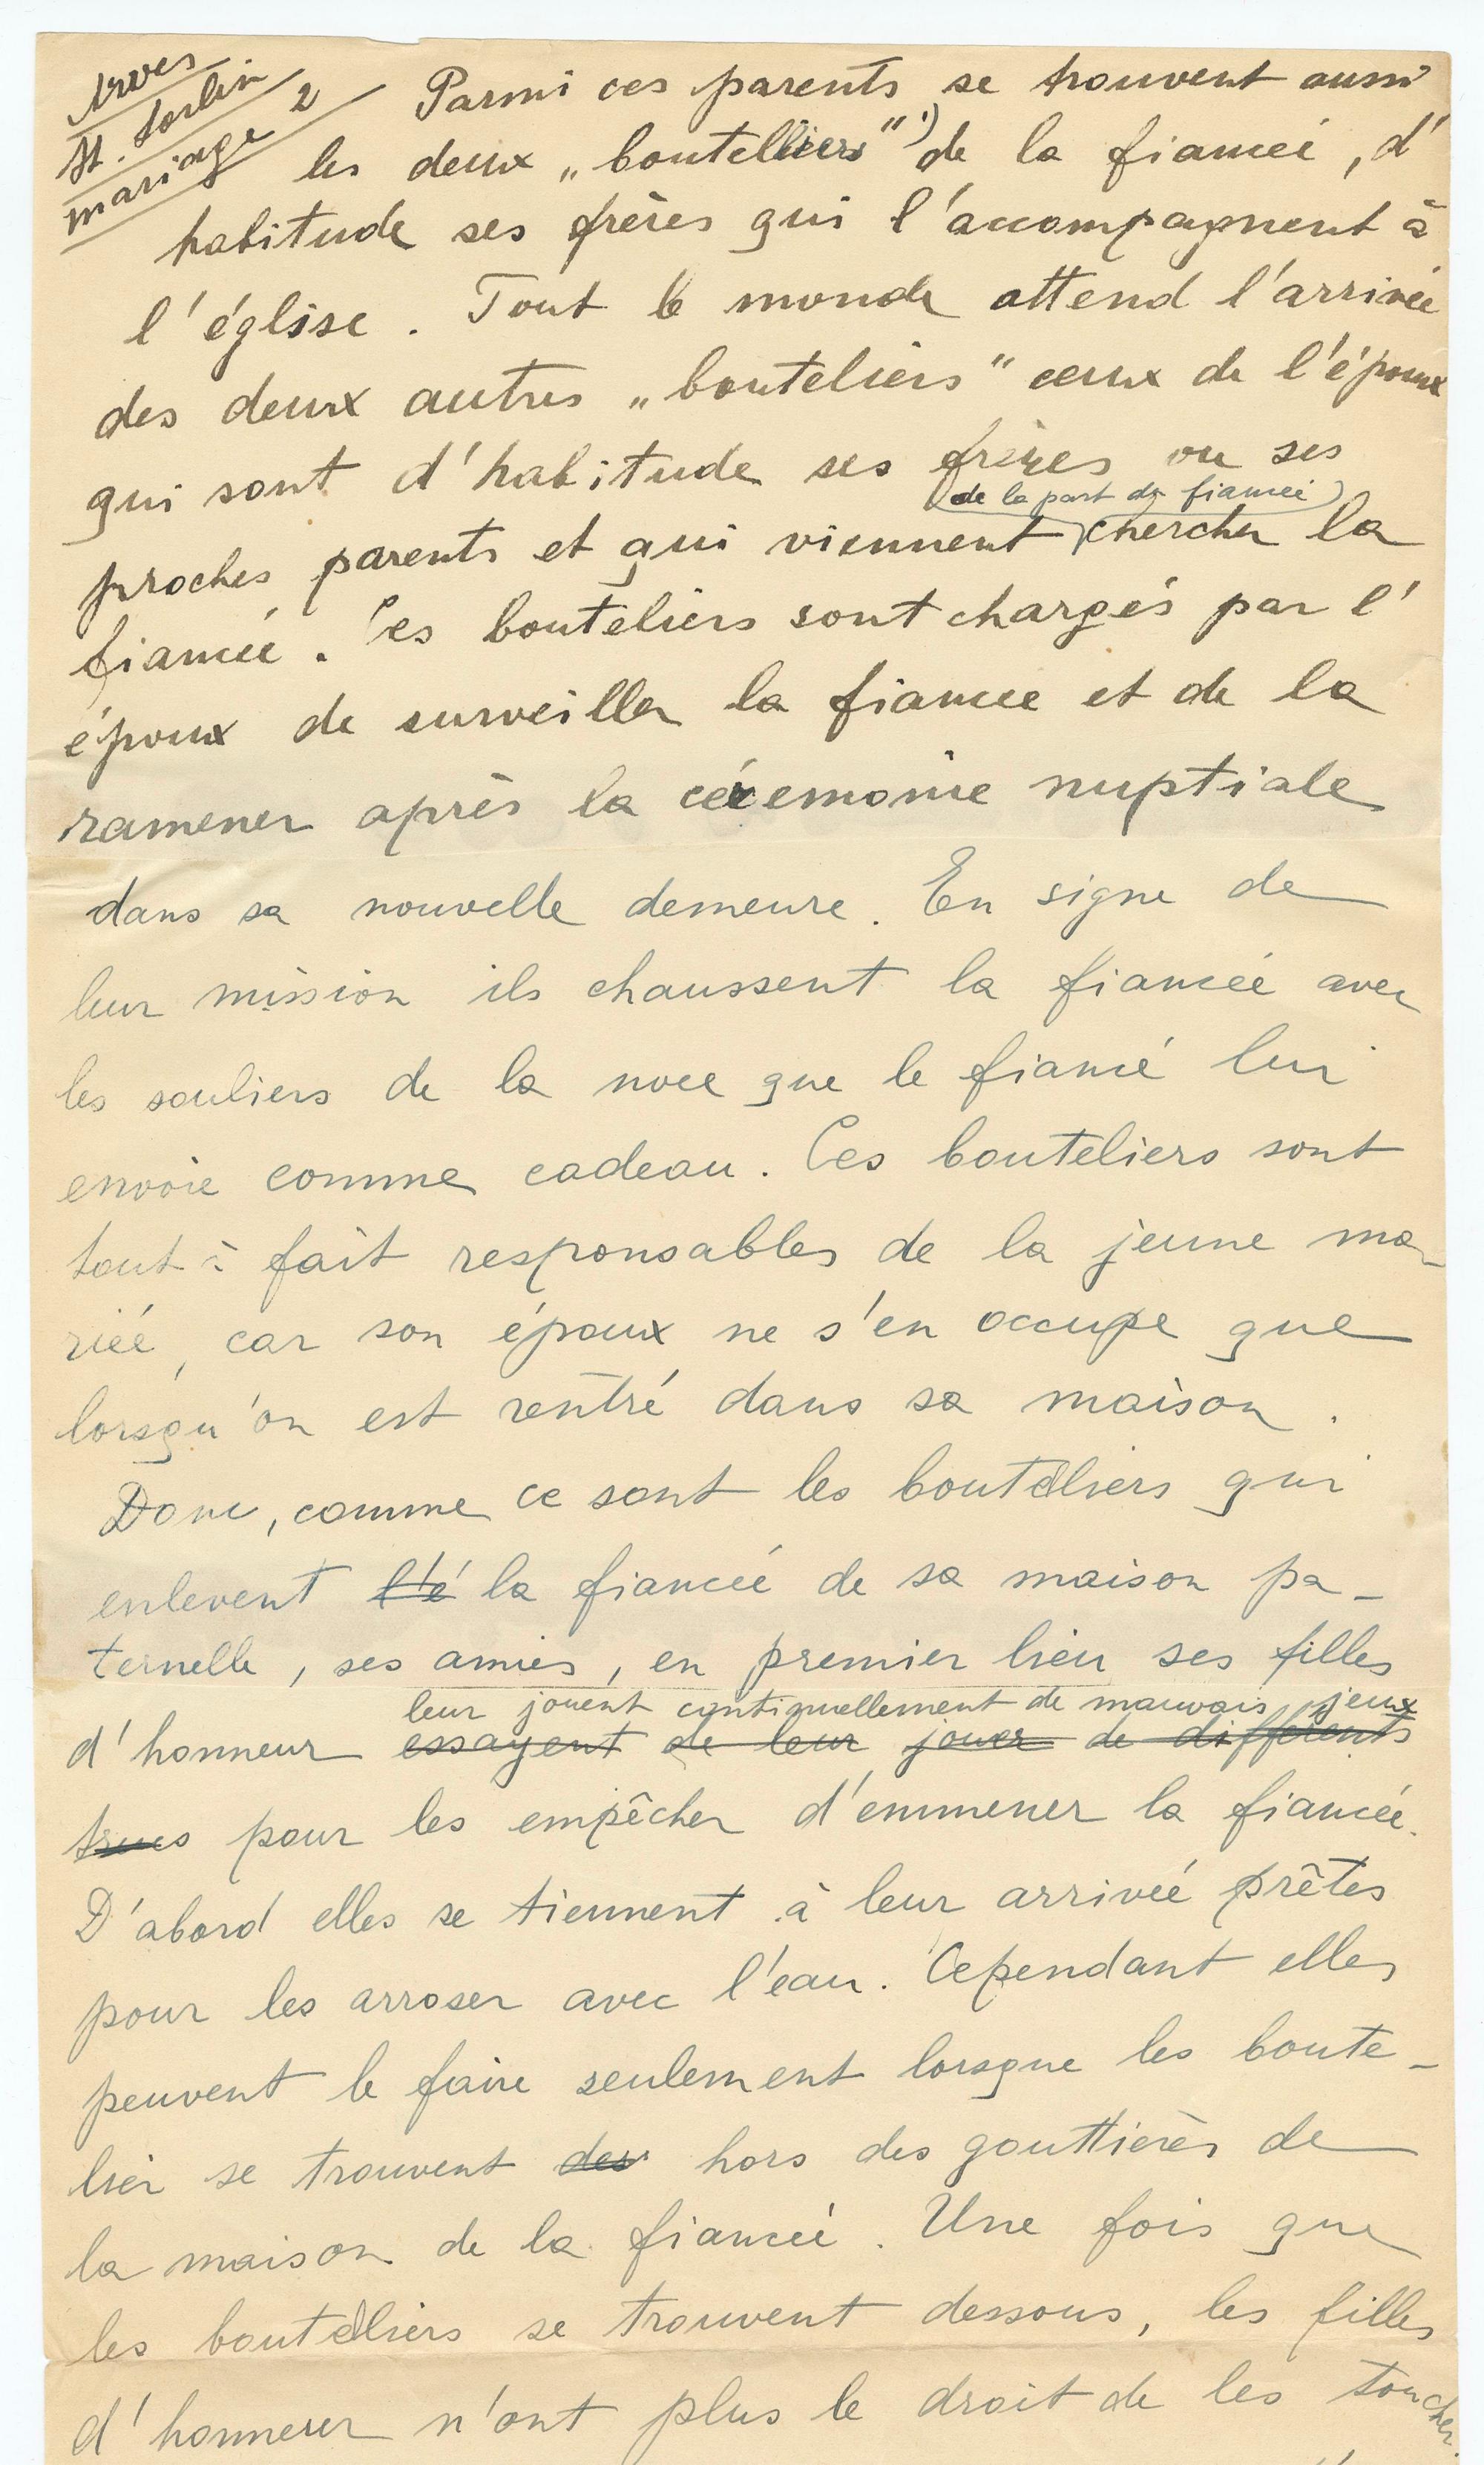 Arves
St. Sorlin
mariage 2
Parmi ces parents se trouvent aussi
les deux „boutelliers" 1) de la fiancée, d'
habitude ses frères qui l'accompagnent à
l'église. Tout le monde attend l'arrivée
des deux autres „bouteliers" ceux de l'époux
qui sont d'habitude ses frères ou ses
de la part du fiancé
proches parents et qui viennent chercher la
fiancée. Ces bouteliers sont chargés par l'
époux de surveiller la fiancée et de la
ramener après la cérémonie nuptiale
dans sa nouvelle demeure. En signe de
leur mission ils chaussent la fiancée avec
les souliers de la noce que le fiancé lui
envoie comme cadeau. Ces bouteliers sont
tout à fait responsables de la jeune ma-
riée, car son époux ne s'en occupe que
lorsqu'on est rentré dans sa maison.
Donc, comme ce sont les bouteliers qui
enlevent l'é la fiancée de sa maison pa-
ternelle, ses amies, en premier lieu ses filles
leur jouent continuellement de mauvais jeux
d'honneur essayent de leur jouer de différents
trucs pour les empêcher d'emmener la fiancée.
D'abord elles se tiennent à leur arrivée prêtes
pour les arroser avec l'eau. Cependant elles
peuvent le faire seulement lorsque les boute-
lier se trouvent des hors des gouttières de
la maison de la fiancée. Une fois que
les bouteliers se trouvent dessous, les filles
d'honneur n'ont plus le droit de les toucher.